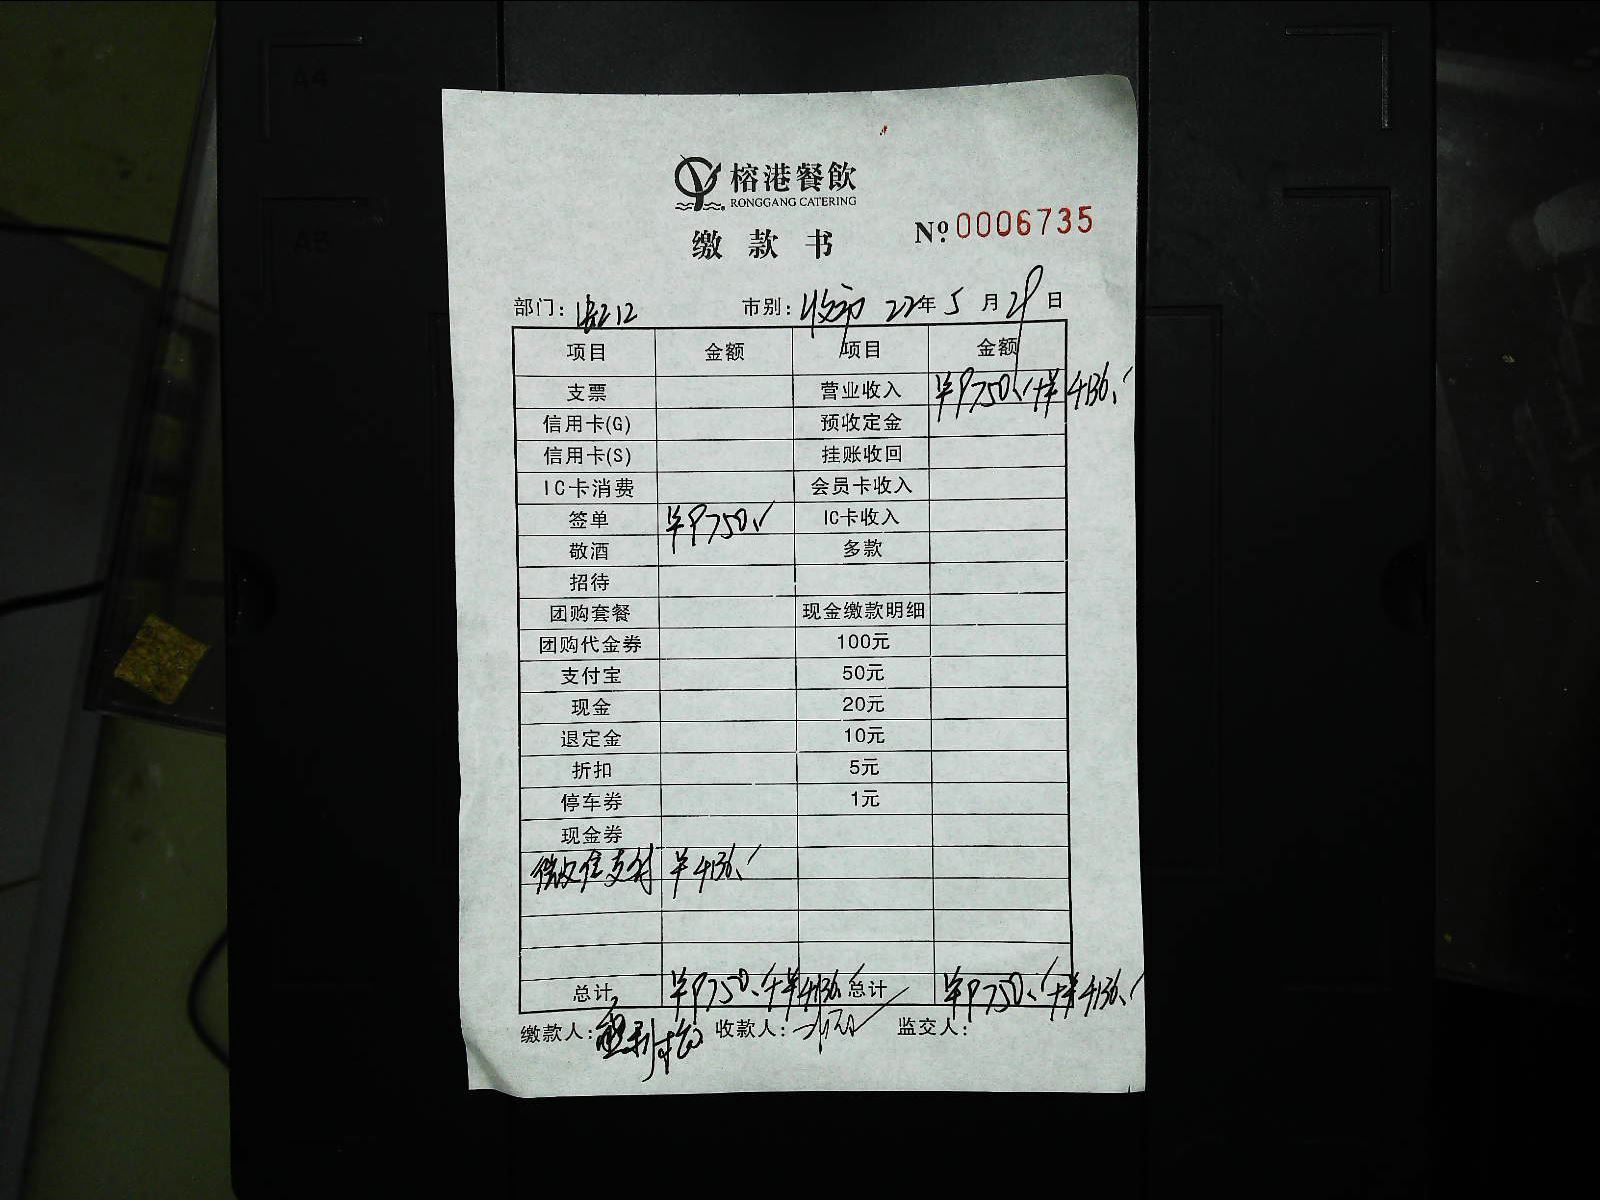 A4
A5
榕港餐飲
RONGGANG CATERING
缴款书
№ 0006735
部门: 市别: 22年5月29日
项目 金额 项目 金额
支票 营业收入 ¥9750、+¥4136、
信用卡(G) 预收定金
信用卡(S) 挂账收回
IC卡消费 会员卡收入
签单 ¥9750、 IC卡收入
敬酒 多款
招待
团购套餐 现金缴款明细
团购代金券 100元
支付宝 50元
现金 20元
退定金 10元
折扣 5元
停车券 1元
现金券
微信支付 ¥4136、
总计 ¥9750、+¥4136、 总计 ¥9750、+¥4136、
缴款人: 收款人: 监交人: